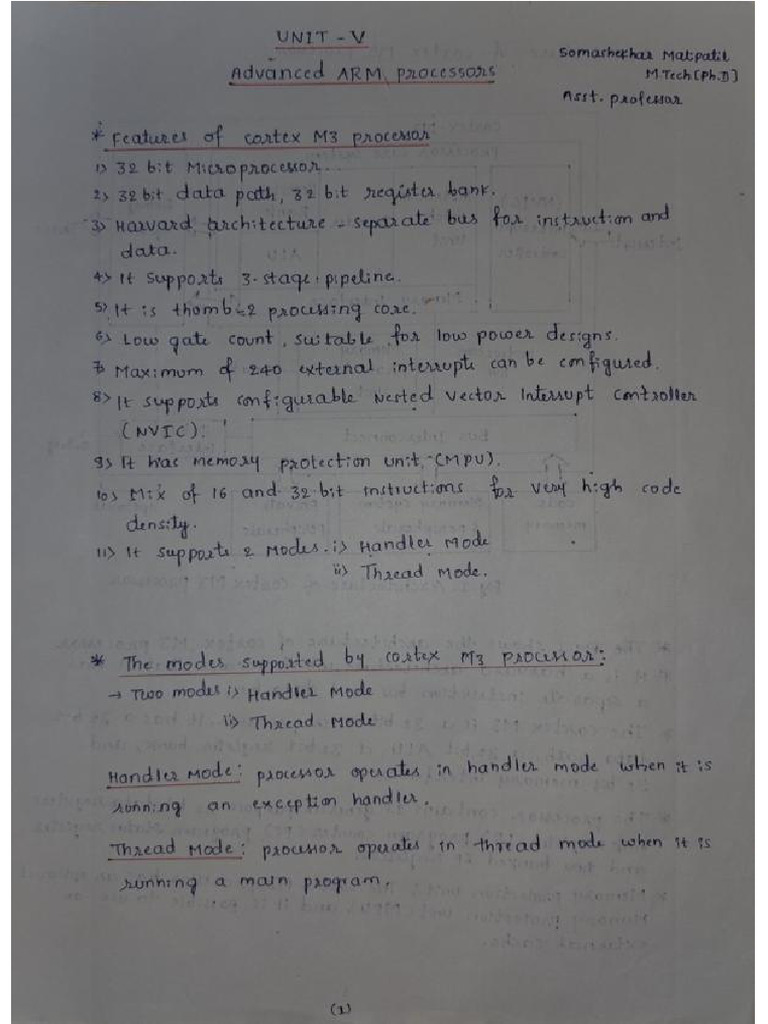 UNIT - V
Advanced ARM processors
Somashekhar Malpatil
M.Tech(Ph.D)
Asst. professor
* Features of cortex M3 processor
1) 32 bit Microprocessor.
2) 32 bit data path, 32 bit register bank.
3) Harvard architecture - separate bus for instruction and
data.
4) It supports 3-stage pipeline.
5) It is thumb-2 processing core.
6) Low gate count, suitable for low power designs.
7) Maximum of 240 external interrupts can be configured.
8) It supports configurable Nested Vector Interrupt Controller
(NVIC).
9) It has Memory protection unit (MPU).
10) Mix of 16 and 32-bit instructions for very high code
density.
11) It supports 2 Modes - i) Handler Mode
ii) Thread Mode.
* The modes supported by cortex M3 processor:
→ Two modes i) Handler Mode
ii) Thread Mode
Handler Mode: processor operates in handler mode when it is
running an exception handler.
Thread Mode: processor operates in thread mode when it is
running a main program.
(1)